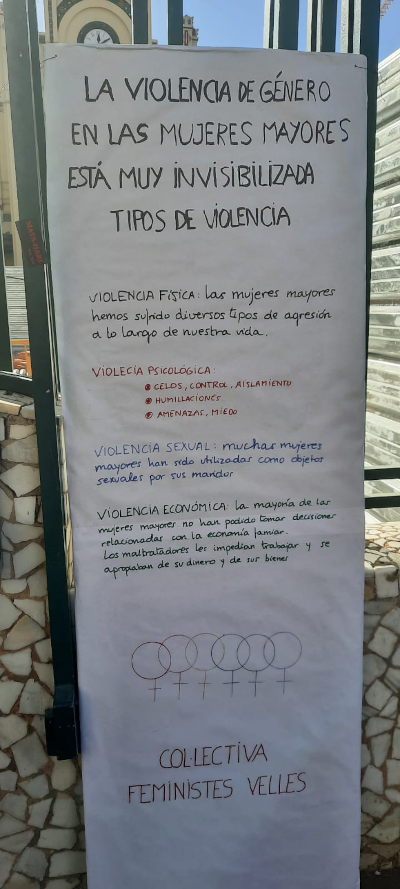 LA VIOLENCIA DE GÉNERO
EN LAS MUJERES MAYORES
ESTÁ MUY INVISIBILIZADA
TIPOS DE VIOLENCIA
VIOLENCIA FÍSICA: las mujeres mayores
hemos sufrido diversos tipos de agresión
a lo largo de nuestra vida.
VIOLECIA PSICOLÓGICA:
CELOS, CONTROL, AISLAMIENTO
HUMILLACIONES
AMENAZAS, MIEDO
VIOLENCIA SEXUAL: muchas mujeres
mayores han sido utilizadas como objetos
sexuales por sus maridos
VIOLENCIA ECONÓMICA: la mayoría de las
mujeres mayores no han podido tomar decisiones
relacionadas con la economía famiar.
Los maltratadores les impedían trabajar y se
apropiaban de su dinero y de sus bienes
COL·LECTIVA
FEMINISTES VELLES